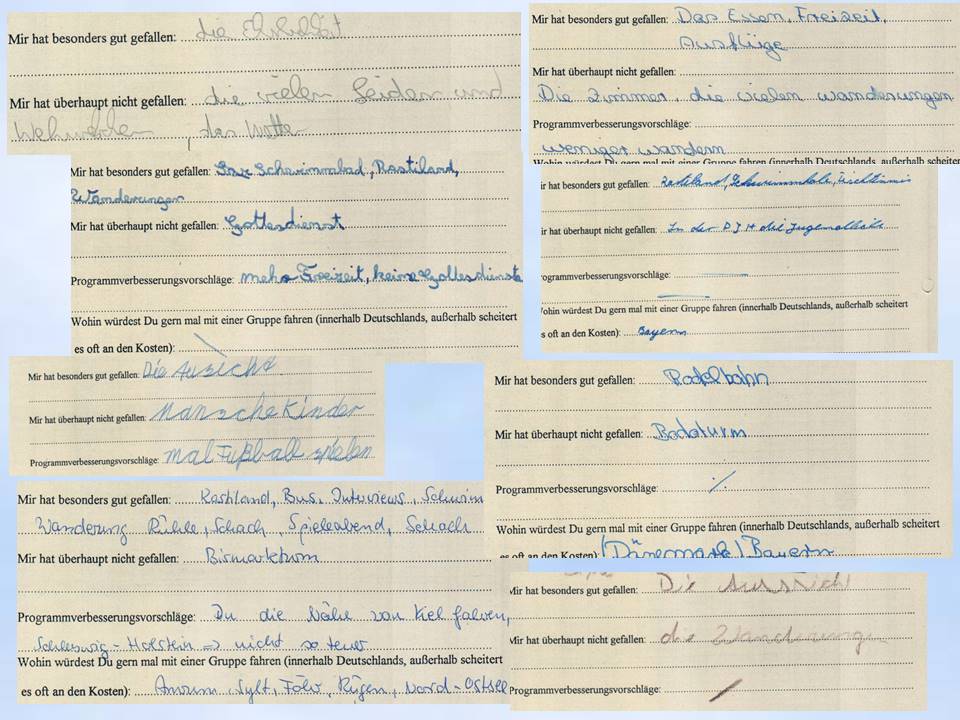 Mir hat besonders gut gefallen: die Ehrlichkeit
Mir hat überhaupt nicht gefallen: die vielen Leiden und
Wehwehchen, das Wetter
Mir hat besonders gut gefallen: Das Essen, Freizeit,
Ausflüge
Mir hat überhaupt nicht gefallen:
Die Zimmer, die vielen wanderungen
Programmverbesserungsvorschläge:
weniger wandern
Wohin würdest Du gern mal mit einer Gruppe fahren (innerhalb Deutschlands, außerhalb scheitert
Mir hat besonders gut gefallen: Schwimmbad, Rastiland,
Wanderungen
Mir hat überhaupt nicht gefallen: Gottesdienst
Programmverbesserungsvorschläge: mehr Freizeit, keine Gottesdienste
Wohin würdest Du gern mal mit einer Gruppe fahren (innerhalb Deutschlands, außerhalb scheitert
es oft an den Kosten):
ir hat besonders gut gefallen: Rastiland, Schwimmhalle, Tischtennis
ir hat überhaupt nicht gefallen: In der DJH die
rogrammverbesserungsvorschläge:
Wohin würdest Du gern mal mit einer Gruppe fahren (innerhalb Deutschlands, außerhalb scheitert
es oft an den Kosten): Bayern
Mir hat besonders gut gefallen: Die Ausicht
Mir hat überhaupt nicht gefallen: Mansche Kinder
Programmverbesserungsvorschläge: mal Fußball spielen
Mir hat besonders gut gefallen: Rodelbahn
Mir hat überhaupt nicht gefallen:
Programmverbesserungsvorschläge:
Wohin würdest Du gern mal mit einer Gruppe fahren (innerhalb Deutschlands, außerhalb scheitert
es oft an den Kosten): (Dänemark) Bayern
Mir hat besonders gut gefallen: Rastiland, Bus, Interviews, Schwim
Wanderung Rühle, Schach, Spieleabend, Schach
Mir hat überhaupt nicht gefallen: Bismarkturm
Programmverbesserungsvorschläge: In die Nähe von Kiel fahren,
Schleswig-Holstein => nicht so teuer
Wohin würdest Du gern mal mit einer Gruppe fahren (innerhalb Deutschlands, außerhalb scheitert
es oft an den Kosten): Amrum, Sylt, Föhr, Rügen, Nord-Ostsee
Mir hat besonders gut gefallen: Die Aussicht
Mir hat überhaupt nicht gefallen: die Wanderung
Programmverbesserungsvorschläge: